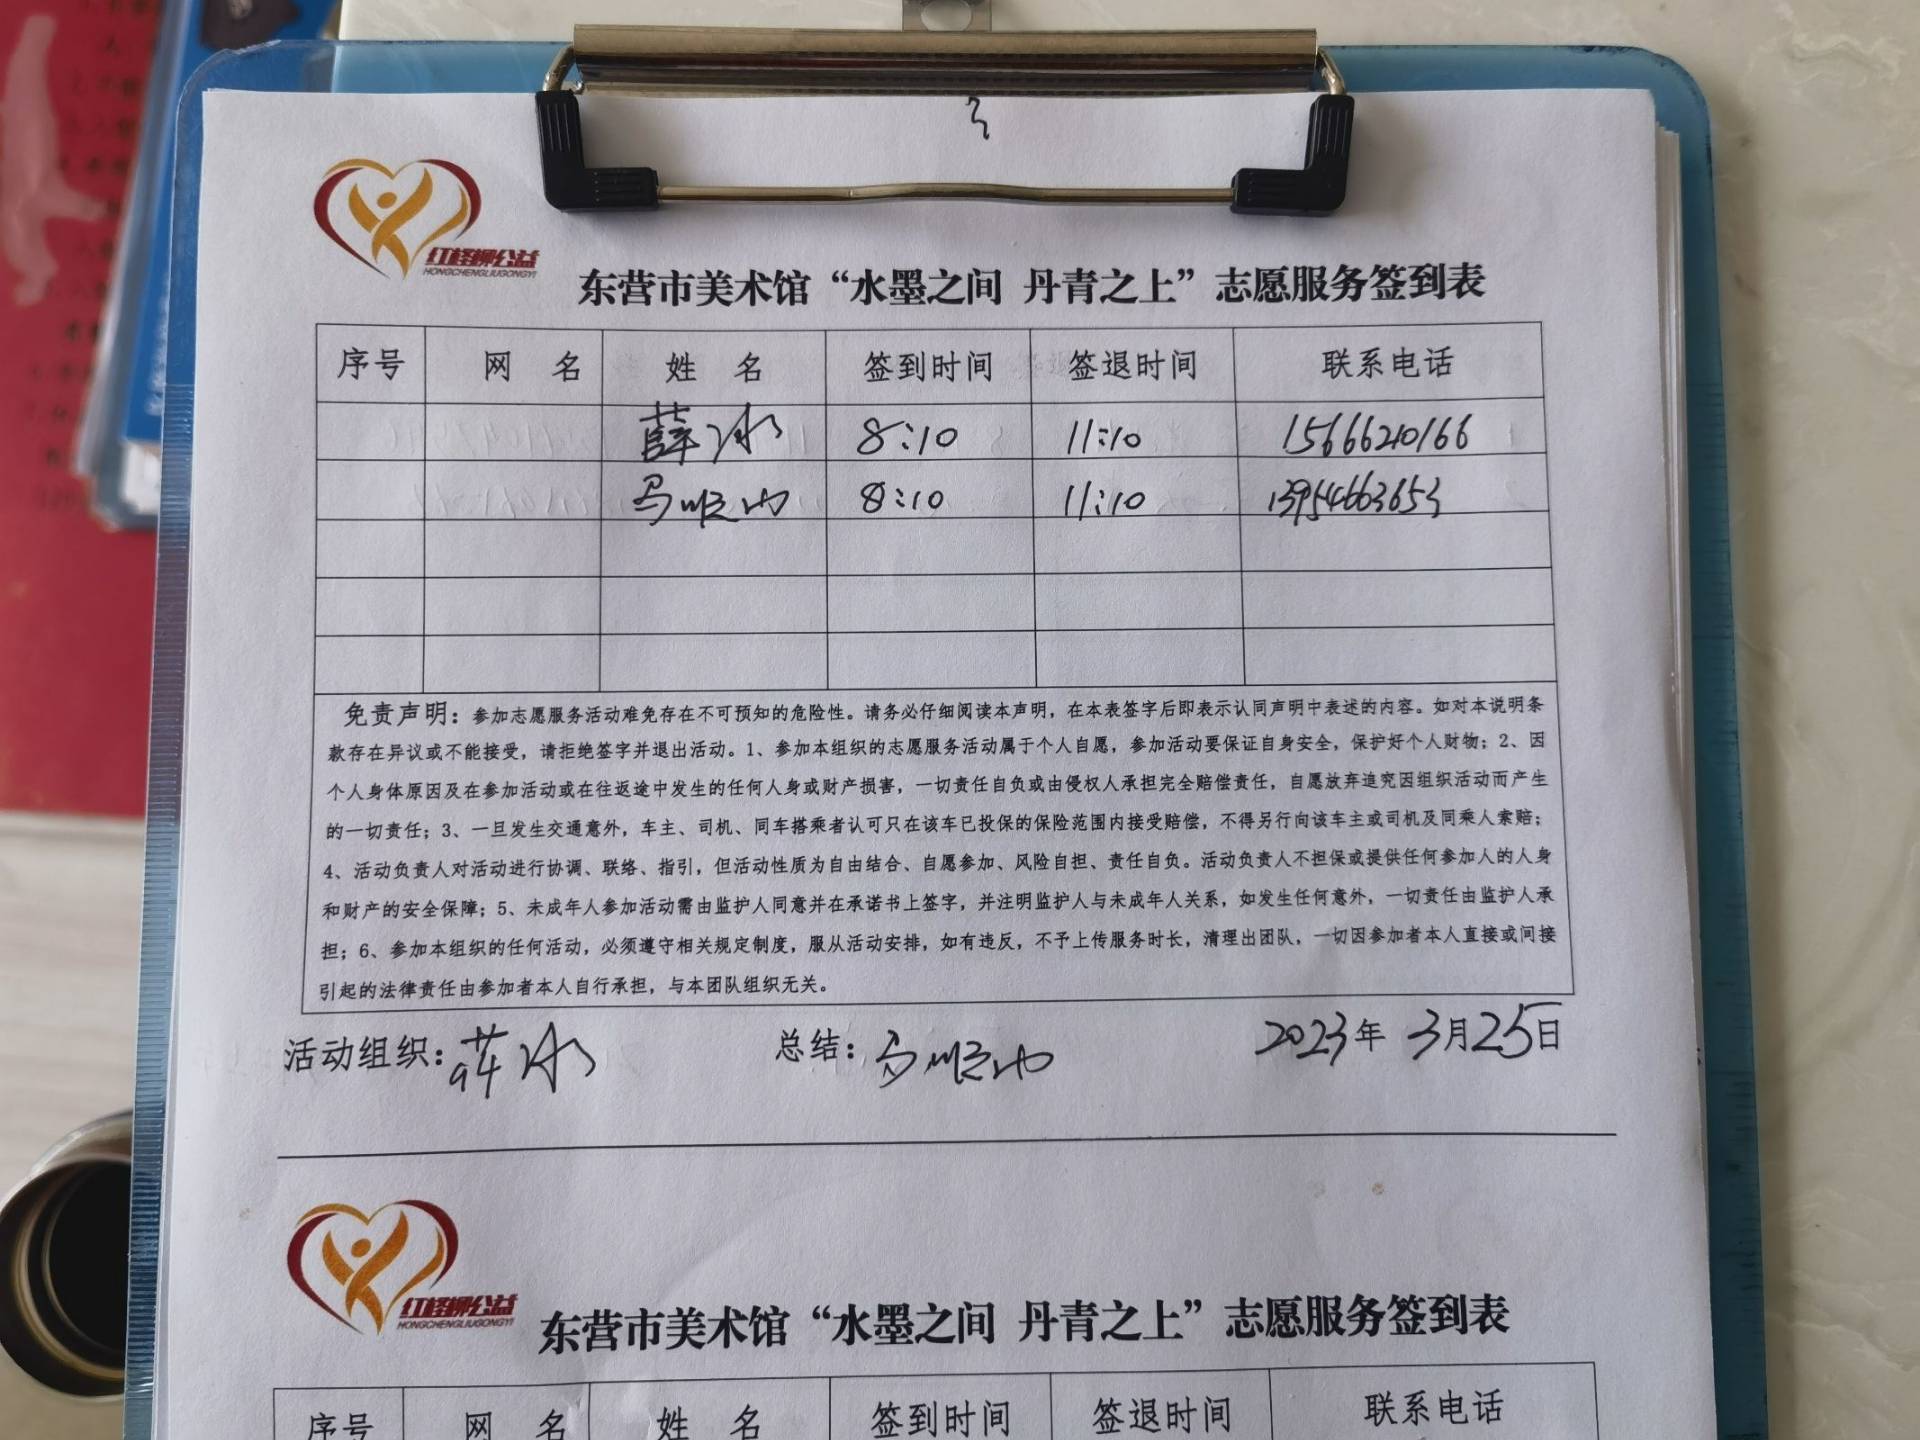 红柽柳公益
HONGCHENGLIUGONGYI
东营市美术馆“水墨之间 丹青之上”志愿服务签到表
序号 网 名 姓 名 签到时间 签退时间 联系电话
薛冰 8:10 11:10 15666210166
马顺 8:10 11:10 13954663653
免责声明：参加志愿服务活动难免存在不可预知的危险性。请务必仔细阅读本声明，在本表签字后即表示认同声明中表述的内容。如对本说明条
款存在异议或不能接受，请拒绝签字并退出活动。1、参加本组织的志愿服务活动属于个人自愿，参加活动要保证自身安全，保护好个人财物；2、因
个人身体原因及在参加活动或在往返途中发生的任何人身或财产损害，一切责任自负或由侵权人承担完全赔偿责任，自愿放弃追究因组织活动而产生
的一切责任；3、一旦发生交通意外，车主、司机、同车搭乘者认可只在该车已投保的保险范围内接受赔偿，不得另行向该车主或司机及同乘人索赔；
4、活动负责人对活动进行协调、联络、指引，但活动性质为自由结合、自愿参加、风险自担、责任自负。活动负责人不担保或提供任何参加人的人身
和财产的安全保障；5、未成年人参加活动需由监护人同意并在承诺书上签字，并注明监护人与未成年人关系，如发生任何意外，一切责任由监护人承
担；6、参加本组织的任何活动，必须遵守相关规定制度，服从活动安排，如有违反，不予上传服务时长，清理出团队，一切因参加者本人直接或间接
引起的法律责任由参加者本人自行承担，与本团队组织无关。
活动组织：薛冰 总结：马顺 2023年 3月25日
红柽柳公益
HONGCHENGLIUGONGYI
东营市美术馆“水墨之间 丹青之上”志愿服务签到表
序号 网 名 姓 名 签到时间 签退时间 联系电话